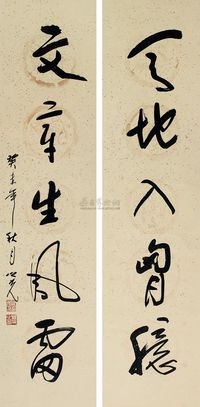 天地入胸臆
文章生风雷
癸未年秋月